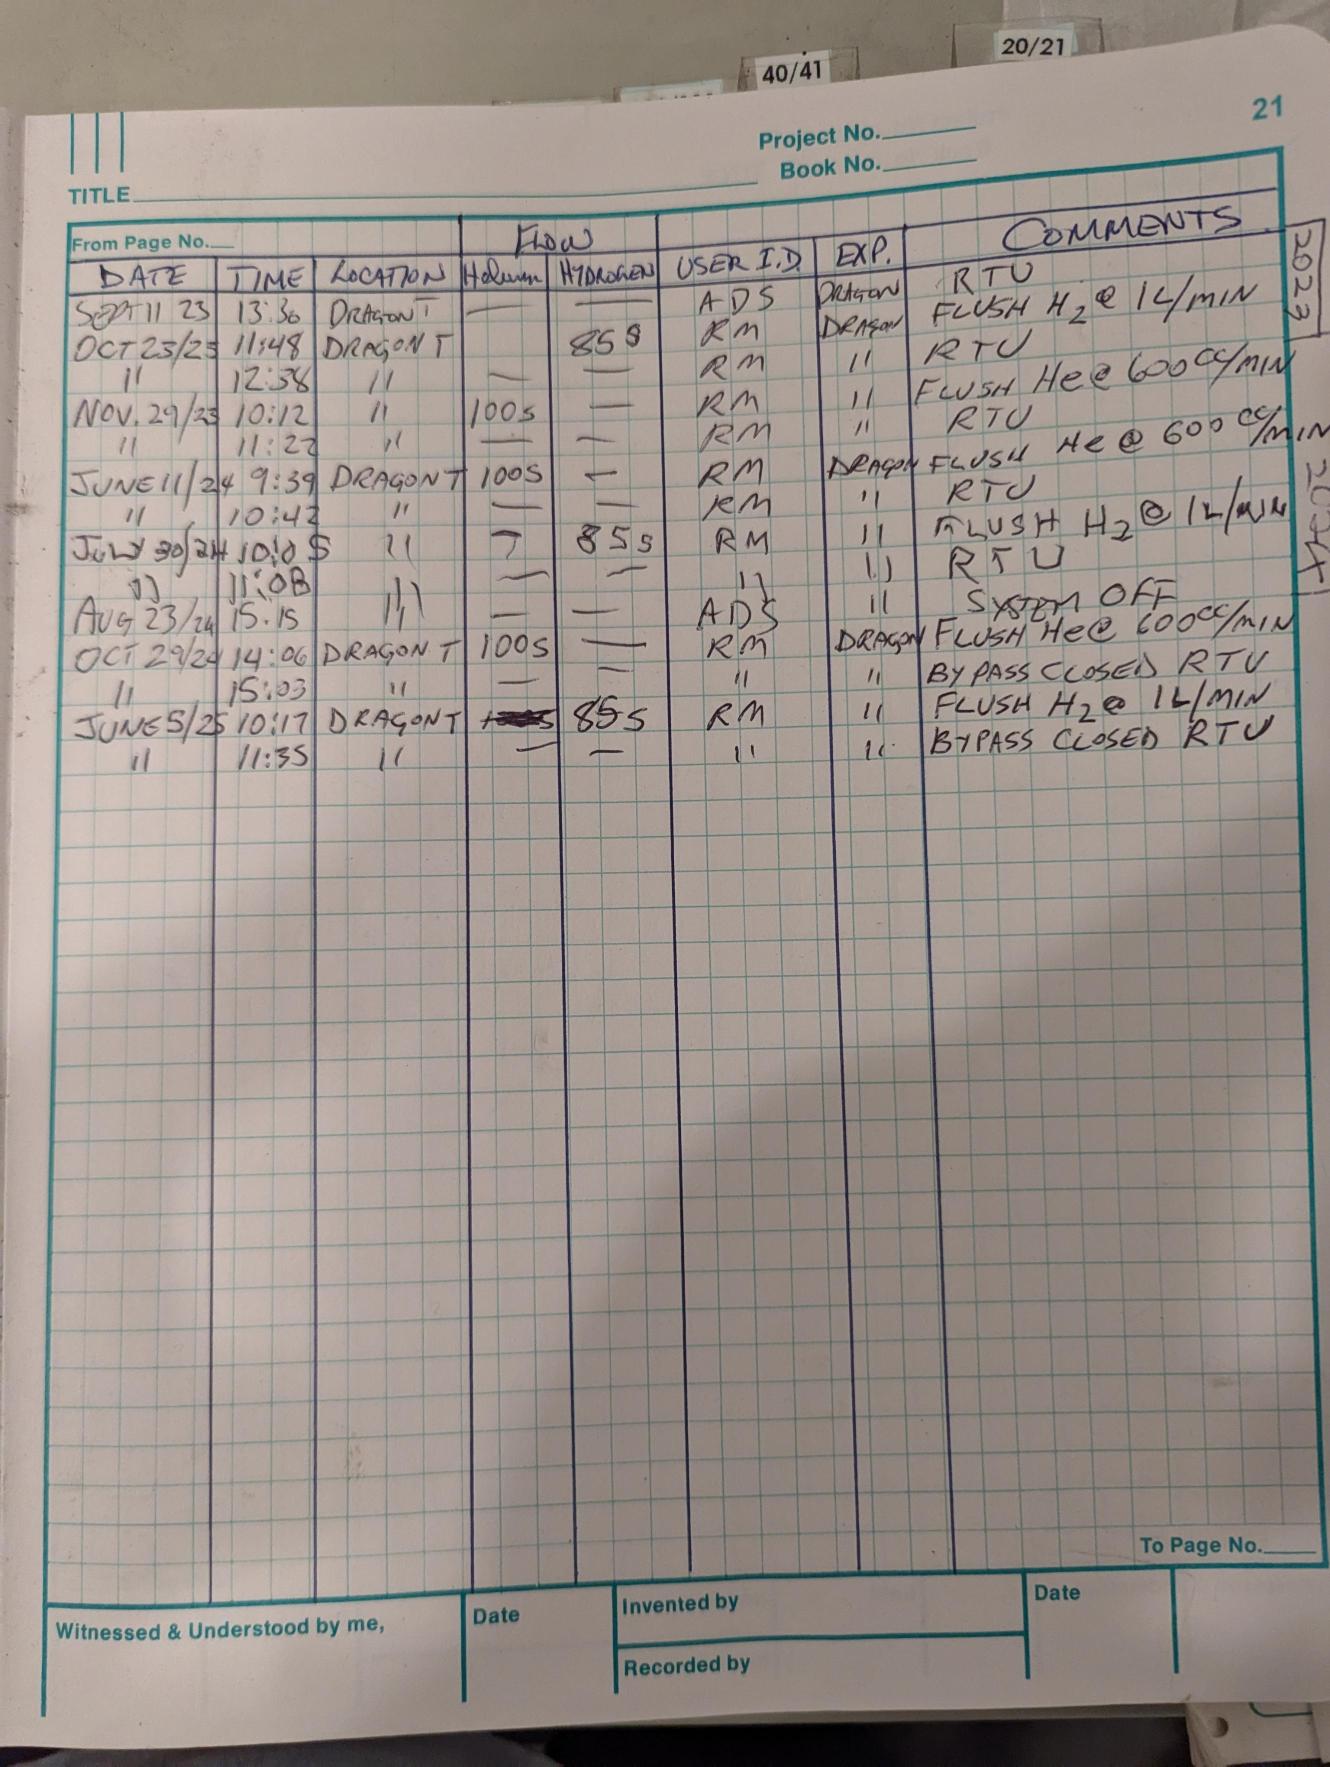 40/41
20/21
21
Project No.
Book No.
TITLE
From Page No.
FLOW
COMMENTS
DATE TIME LOCATION Helium HYDROGEN USER I.D. EXP.
SEPT 11 23 13:30 DRAGON T — — ADS DRAGON RTU
OCT 23/23 11:48 DRAGON T 85s RM DRAGON FLUSH H2 @ 1L/MIN
" 12:58 " — — RM " RTU
NOV. 29/23 10:12 " 100s — RM " FLUSH He @ 600 cc/MIN
" 11:22 " — — RM " RTU
JUNE 11/24 9:39 DRAGON T 100s — RM DRAGON FLUSH He @ 600 cc/MIN
" 10:42 " — — RM " RTU
JULY 30/24 10:05 " — 85s RM " FLUSH H2 @ 1L/MIN
" 11:08 " — — " " RTU
AUG 23/24 15:15 " — — ADS " SYSTEM OFF
OCT 29/24 14:06 DRAGON T 100s — RM DRAGON FLUSH He @ 600cc/MIN
" 15:03 " — — " " BYPASS CLOSED RTU
JUNE 5/25 10:17 DRAGON T 85s RM " FLUSH H2 @ 1L/MIN
" 11:35 " — — " " BYPASS CLOSED RTU
2023
To Page No.
Witnessed & Understood by me,
Date
Invented by
Date
Recorded by